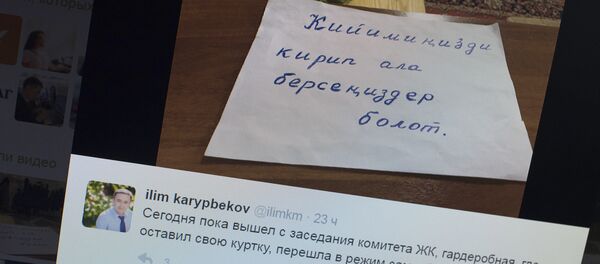 Кийимиңизди
кирип ала
берсеңиздер
болот.
ilim karypbekov @ilimkm · 23 ч
Сегодня пока вышел с заседания комитета ЖК, гардеробная, где
оставил свою куртку, перешла в режим
3
ли видео